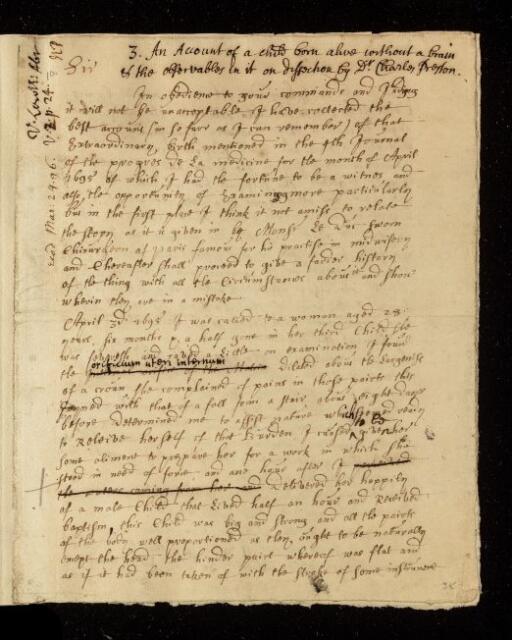 3. An Account of a child born alive without a brain
& the observables in it on dissection by Dr Charles Preston.
Sir
In obedience to your commands and Judging
it will not be unacceptable I have collected the
best account (in so farr as I can remember) of that
Extraordinary Birth mentioned in the 4th Journal
of the progres de La medicine for the month of April
1695 of which I had the fortune to be a witnes and
also the opportunity of Examining more particularly
but in the first place I think it not amiss to relate
the story as it is given in by Monsr Le Duc sworn
Chirurgeon of Paris famous for his practise in midwifery
and thereafter shall proceed to give a history
of the thing with all the Circumstances about it and show
wherein they are in a mistake.
April 3d 1695 I was called to a woman aged 28
years, six months & a half gone in her third Child she
was on examination I found
the orificium uteri internum dilated about the Largeness
of a crown she complained of pains in those parts this
Joyned with that of a fall from a stair about Eight days
before determined me to assist nature which seemed ready
to Relieve herself of that Burden I caused to give her
some aliment to prepare her for a work in which she
stood in need of force and ane hour after I perceived
the waters coming from her and delivered her happily
of a male Child that Lived half an hour and Received
baptism, this Child was big and strong and all the parts
of the body well proportioned as they ought to be naturally
except the head the hinder part whereof was flat and
as if it had been taken of with the stroke of some instrument
read Mar. 24. 96.